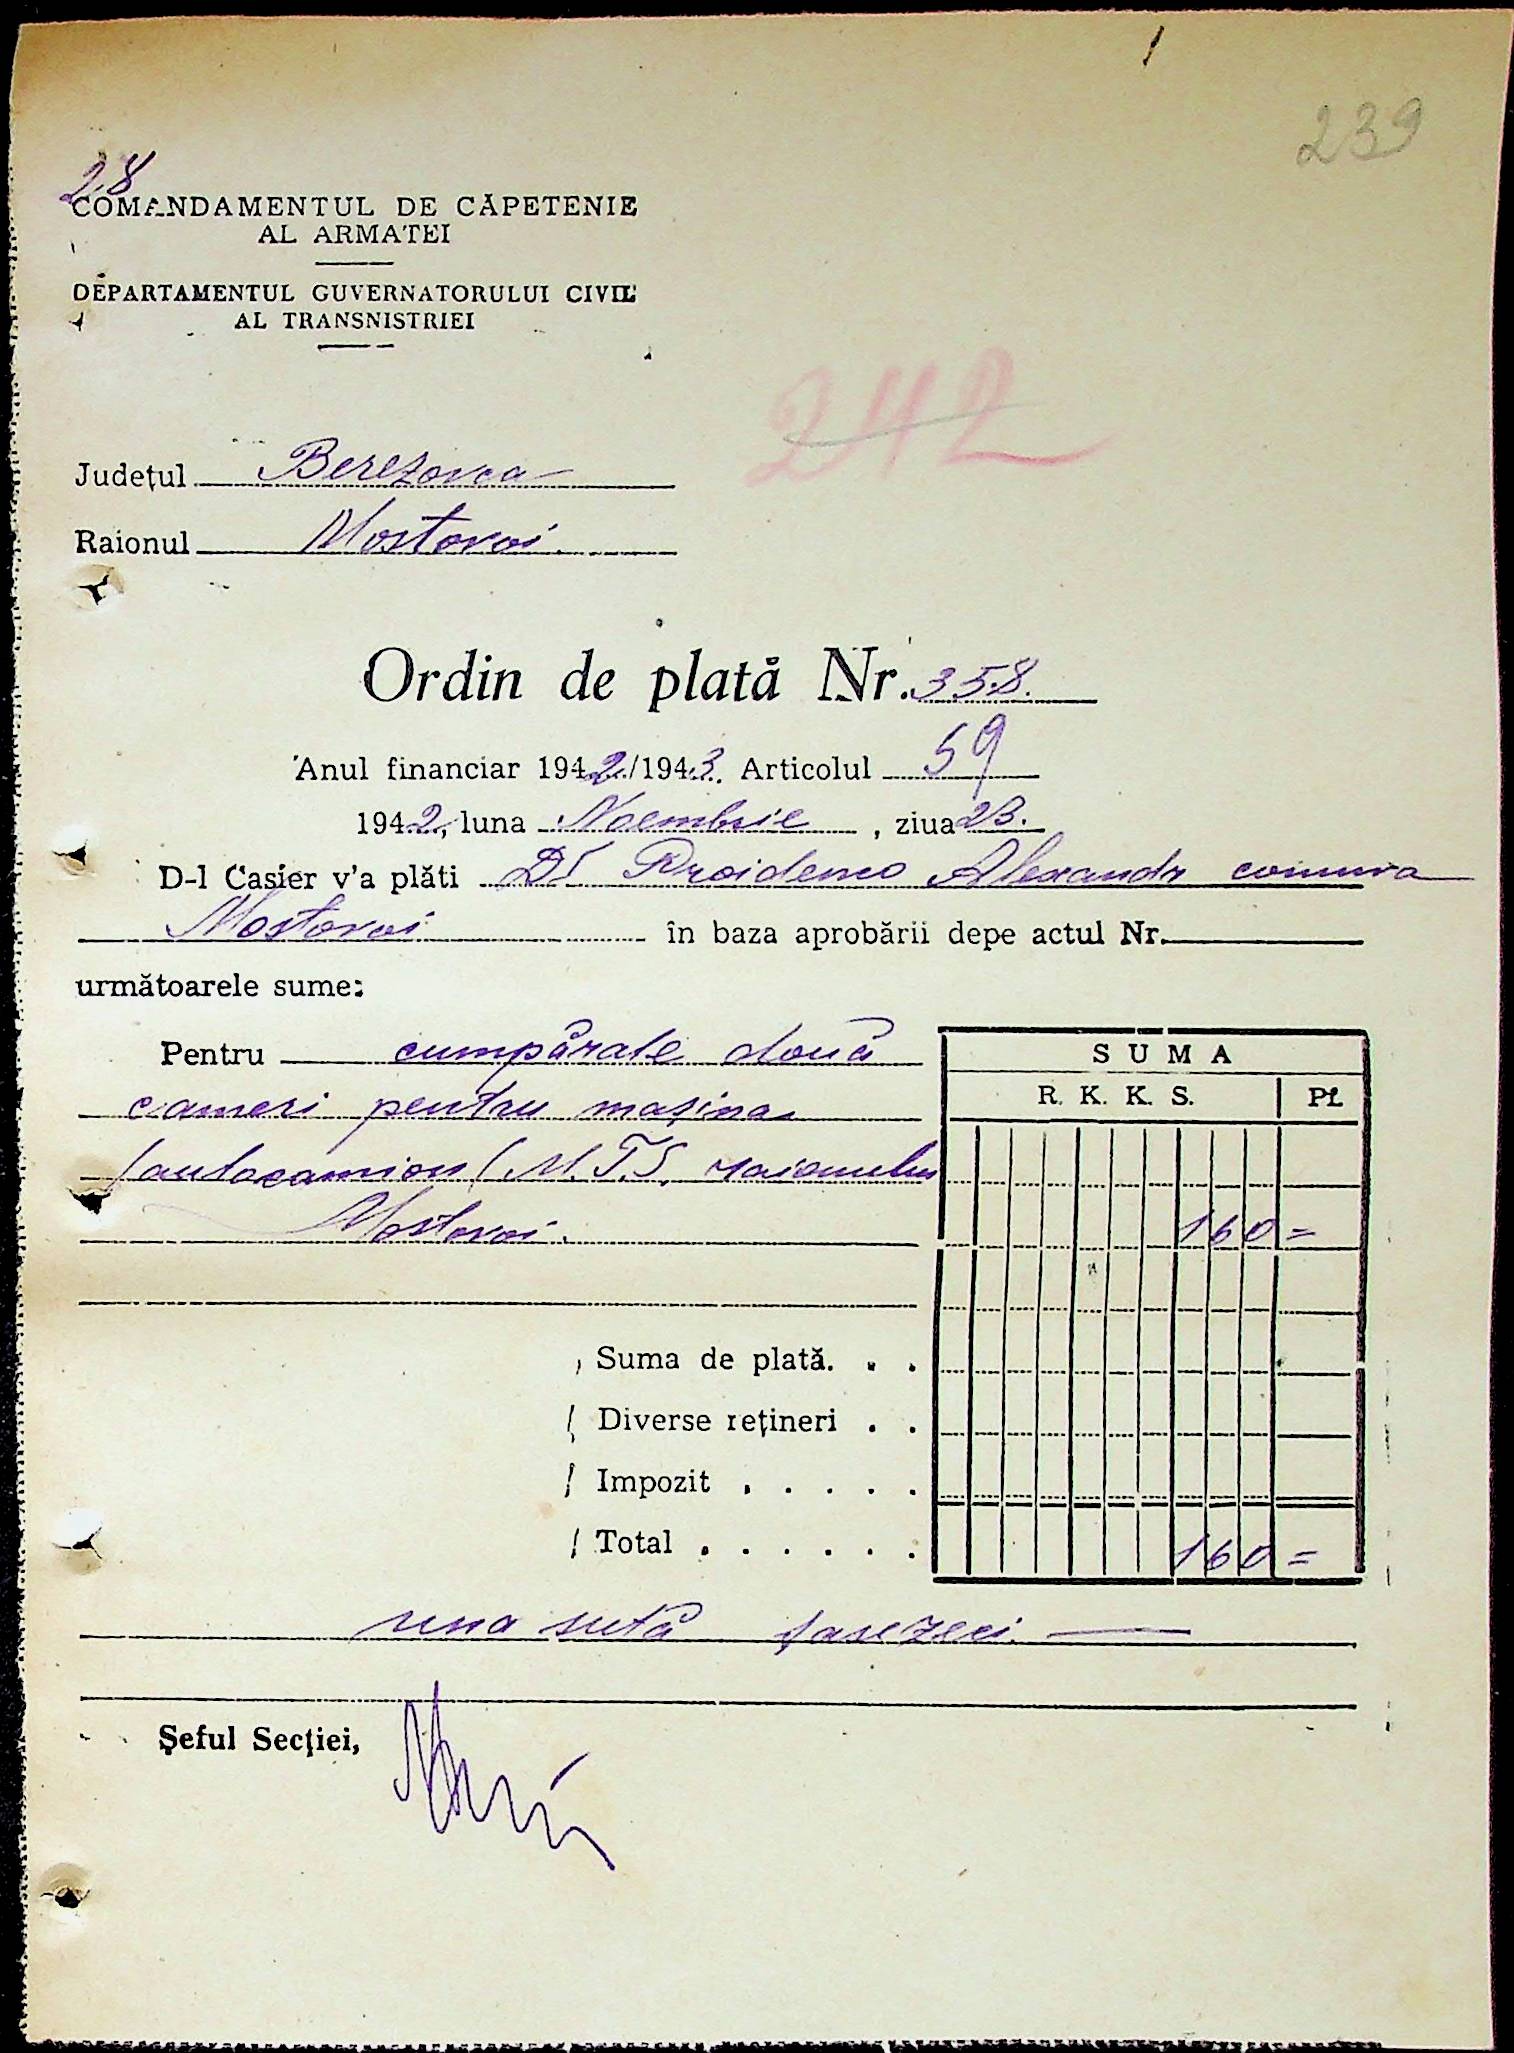 239
28
COMANDAMENTUL DE CĂPETENIE
AL ARMATEI
DEPARTAMENTUL GUVERNATORULUI CIVIL
AL TRANSNISTRIEI
242
Județul Berezovca
Raionul Mostovoi
Ordin de plată Nr. 358.
Anul financiar 1942/1943. Articolul 59
1942, luna Noembrie, ziua 23.
D-l Casier v'a plăti Dl Alexandr comuna
Mostovoi în baza aprobării depe actul Nr.
următoarele sume:
Pentru cumpărate două
cameri pentru mașina
(autocamion( M.T.S. raionului
Mostovoi.
SUMA
R. K. K. S. Pf.
160 =
Suma de plată. . .
Diverse rețineri . .
Impozit . . . . .
Total . . . . . . 160 =
una sută șasezeci. —
Șeful Secției,